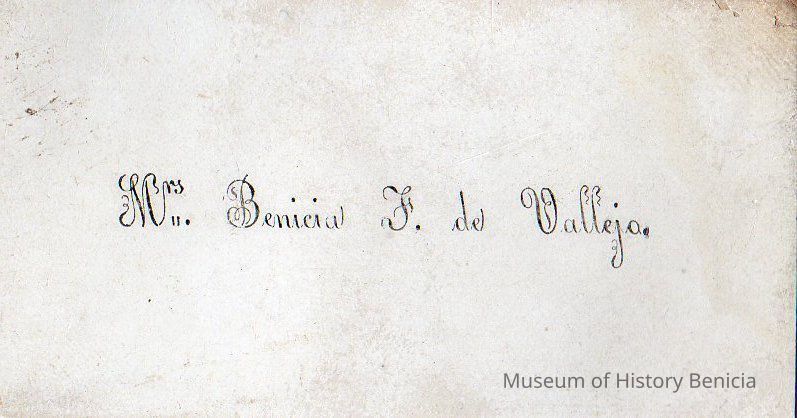 Mrs. Benicia F. de Valleja.
Museum of History Benicia